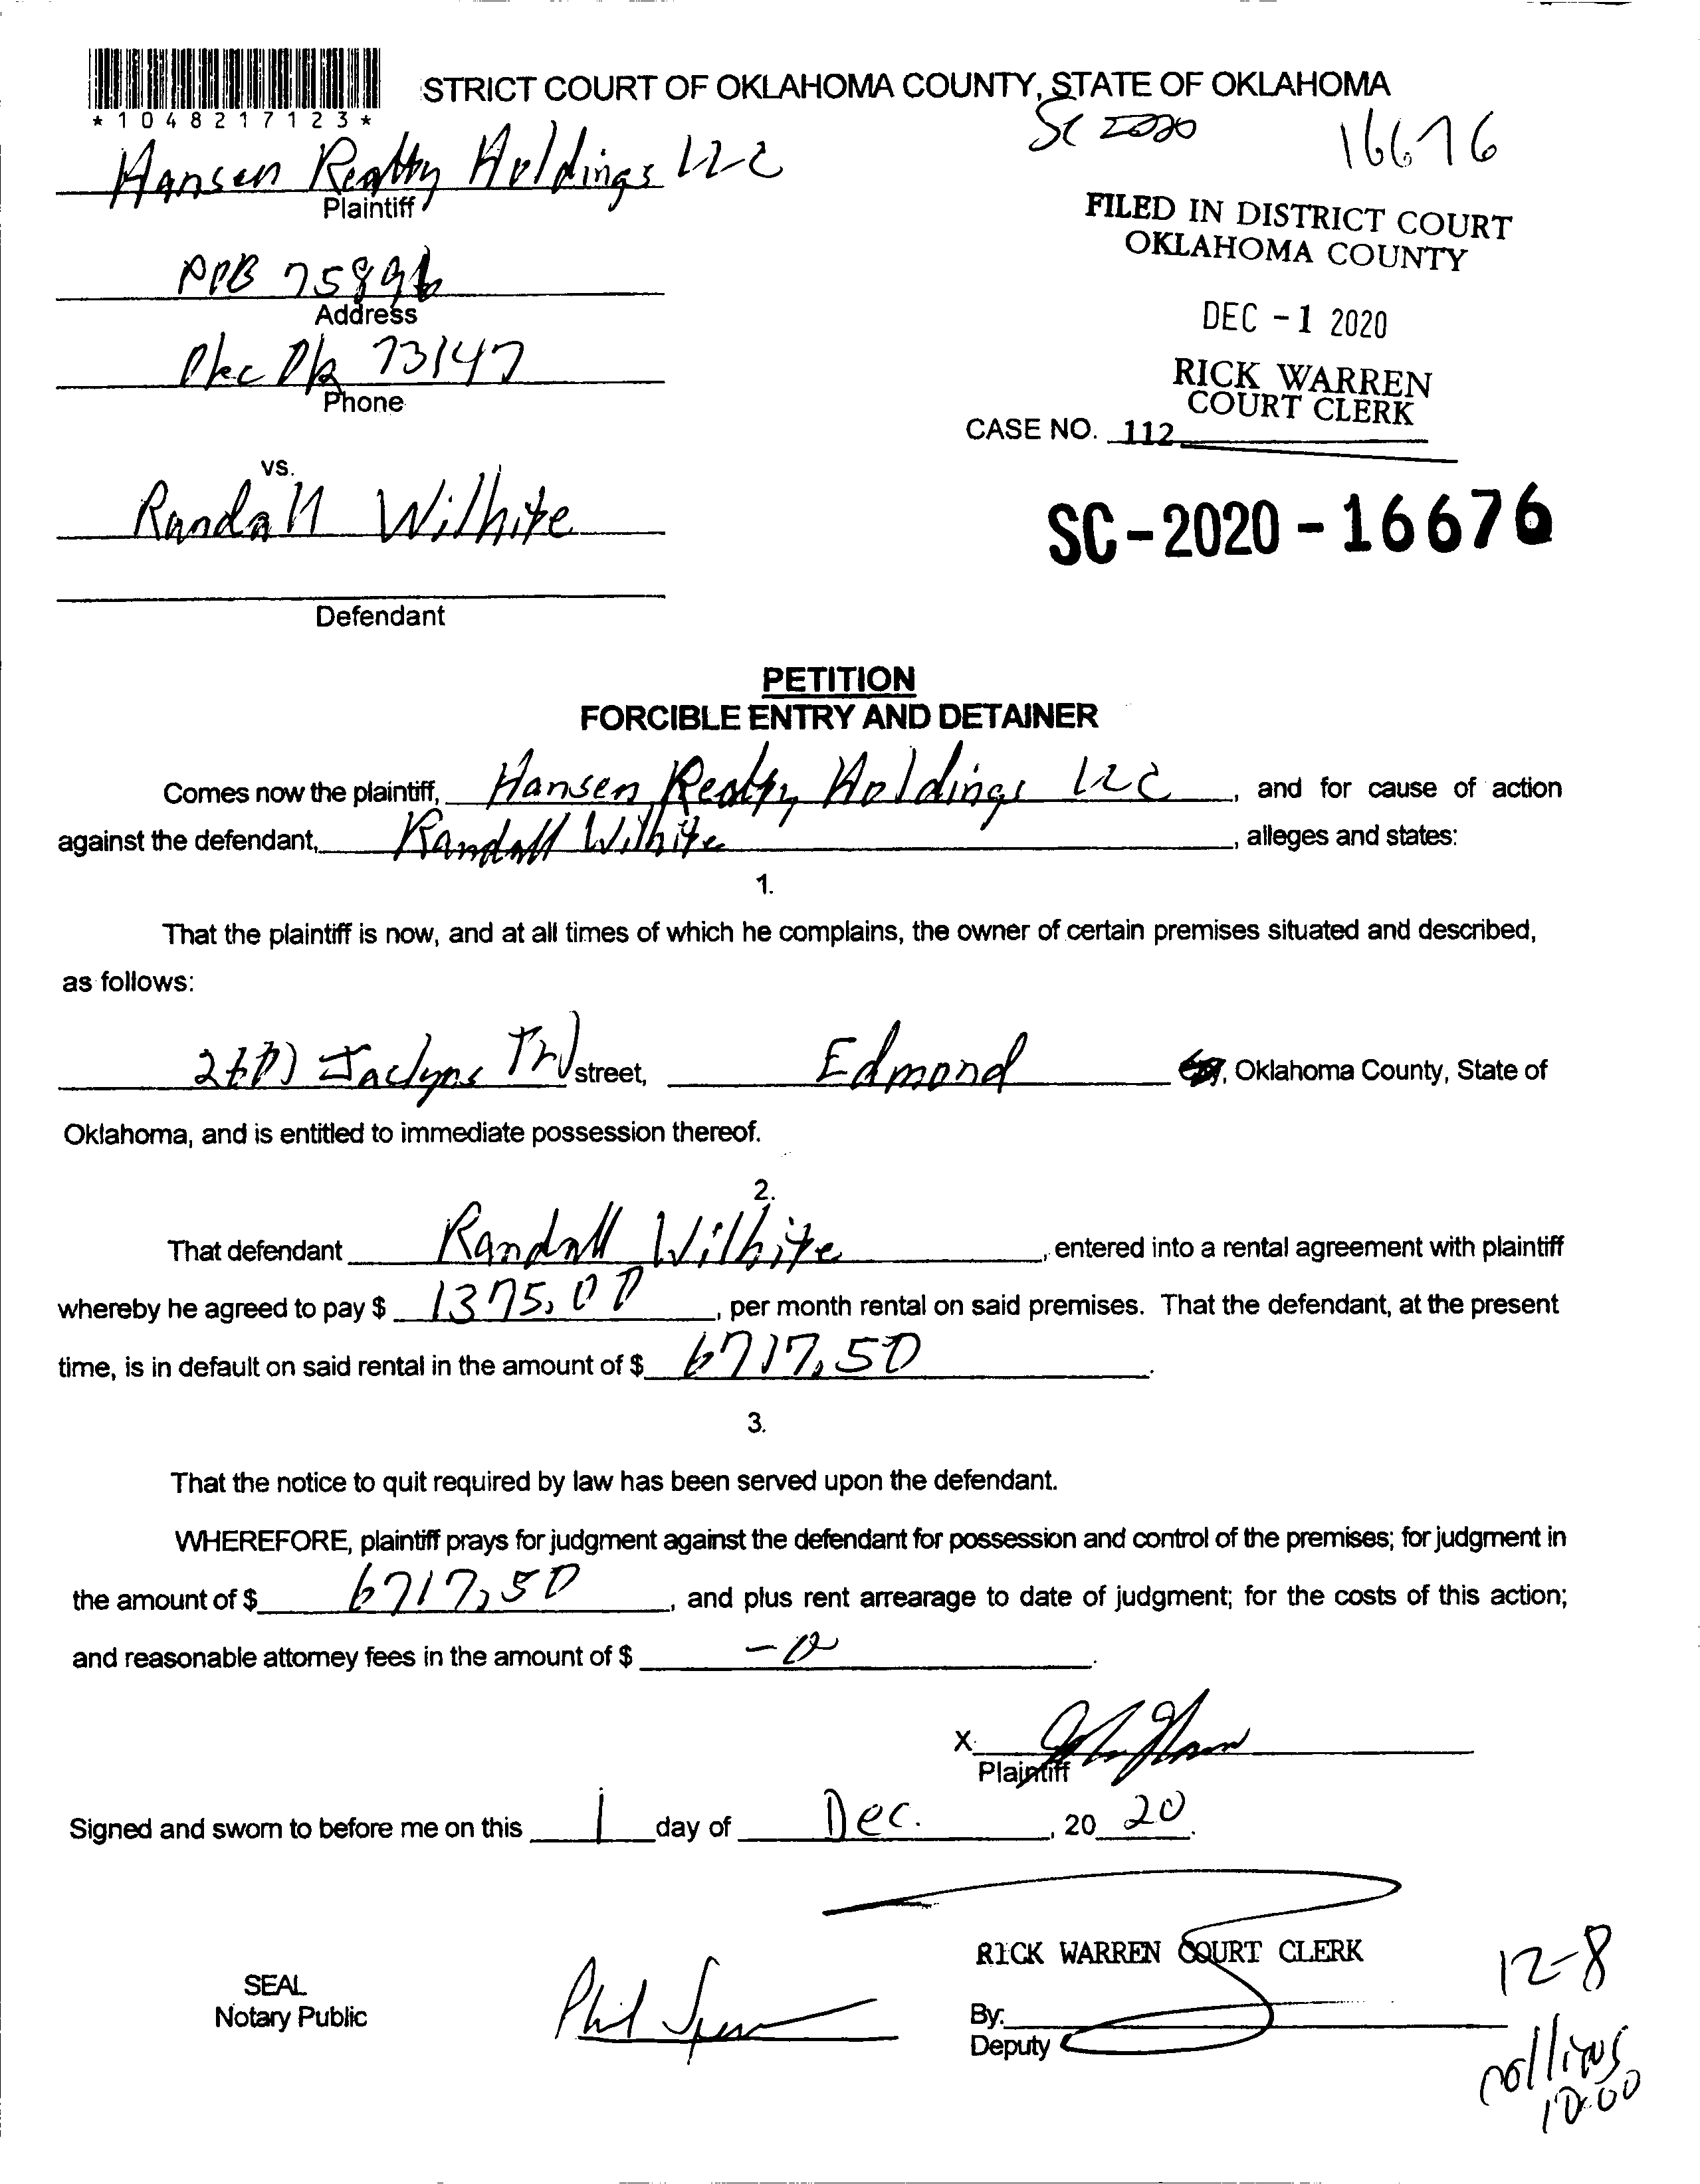 STRICT COURT OF OKLAHOMA COUNTY, STATE OF OKLAHOMA
*1048217123*
SC 2020 16676
Hansen Realty Holdings LLC
Plaintiff
FILED IN DISTRICT COURT
OKLAHOMA COUNTY
POB 75896
Address
DEC -1 2020
Okc Ok 73147
Phone
RICK WARREN
COURT CLERK
CASE NO. 112
vs.
Randall Wilhite
SC-2020-16676
Defendant
PETITION
FORCIBLE ENTRY AND DETAINER
Comes now the plaintiff, Hansen Realty Holdings LLC, and for cause of action
against the defendant, Randall Wilhite, alleges and states:
1.
That the plaintiff is now, and at all times of which he complains, the owner of certain premises situated and described,
as follows:
Jaclyns street, Edmond, Oklahoma County, State of
Oklahoma, and is entitled to immediate possession thereof.
2.
That defendant Randall Wilhite, entered into a rental agreement with plaintiff
whereby he agreed to pay $ 1375.00, per month rental on said premises. That the defendant, at the present
time, is in default on said rental in the amount of $ 6717.50.
3.
That the notice to quit required by law has been served upon the defendant.
WHEREFORE, plaintiff prays for judgment against the defendant for possession and control of the premises; for judgment in
the amount of $ 6717.50, and plus rent arrearage to date of judgment; for the costs of this action;
and reasonable attorney fees in the amount of $ -0.
X
Plaintiff
Signed and sworn to before me on this 1 day of Dec., 20 20.
RICK WARREN COURT CLERK
12-8
SEAL
Notary Public
Phil
By:
Deputy
10:00